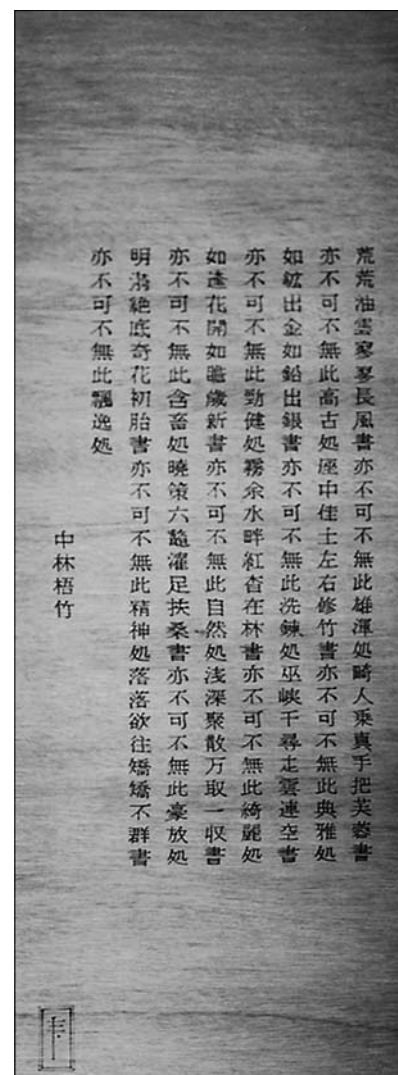 荒荒油雲寥寥長風書亦不可不無此雄渾処畸人乗真手把芙蓉書
亦不可不無此高古処座中佳士左右修竹書亦不可不無此典雅処
如鉱出金如鉛出銀書亦不可不無此洗錬処巫峡千尋走雲連空書
亦不可不無此勁健処霧余水畔紅杏在林書亦不可不無此綺麗処
如逢花開如瞻歳新書亦不可不無此自然処浅深聚散万取一収書
亦不可不無此含畜処暁策六鼇濯足扶桑書亦不可不無此豪放処
明漪絶底奇花初胎書亦不可不無此精神処落落欲往矯矯不群書
亦不可不無此飄逸処
中林梧竹